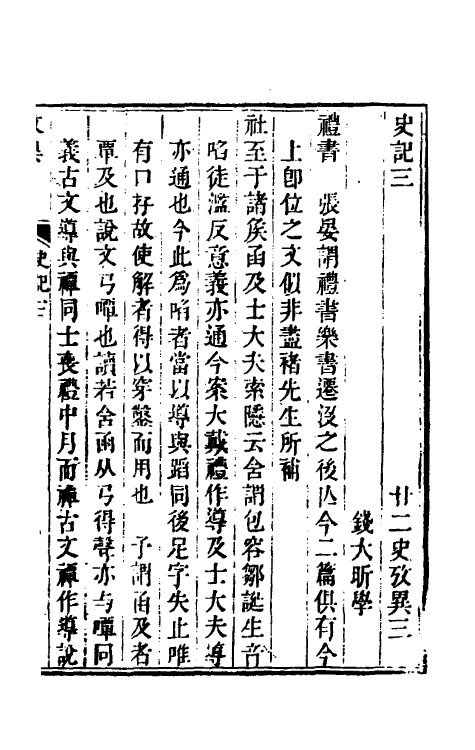 史記三　廿二史攷異三
錢大昕學
禮書　張晏謂禮書樂書遷沒之後亾今二篇俱有今
上卽位之文似非盡褚先生所補
社至于諸矦函及士大夫索隱云含謂包容鄒誕生音
啗徒濫反意義亦通今案大戴禮作導及士大夫導
亦通也今此爲啗者當以導與蹈同後足字失止唯
有口存故使解者得以穿鑿而用也　予謂函及者
覃及也說文㔾嘾也讀若含函从㔾得聲亦与嘾同
義古文導與禫同士喪禮中月而禫古文禫作導說
史記三